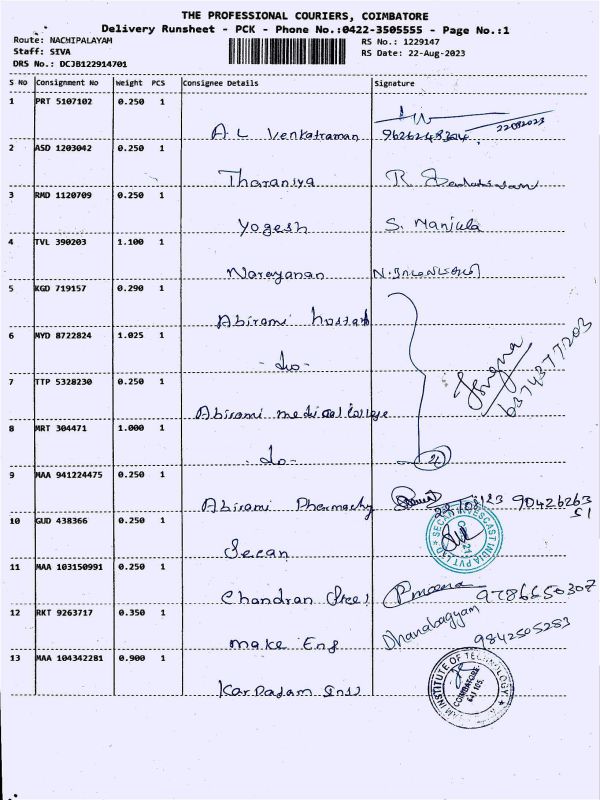 THE PROFESSIONAL COURIERS, COIMBATORE
Delivery Runsheet - PCK - Phone No.:0422-3505555 - Page No.:1
Route: NACHIPALAYAM
RS No.: 1229147
Staff: SIVA
RS Date: 22-Aug-2023
DRS No.: DCJB122914701
S No Consignment No Weight PCS Consignee Details Signature
1 PRT 5107102 0.250 1
A L Venkatraman 9626248304 22082023
2 ASD 1203042 0.250 1
Tharaniya
3 RMD 1120709 0.250 1
Yogesh S. Manjula
4 TVL 390203 1.100 1
Narayanan
5 KGD 719157 0.290 1
Abirami hostel
6 MYD 8722824 1.025 1
- do -
6374377203
7 TTP 5328230 0.250 1
Abirami medical college
8 MRT 304471 1.000 1
- do -
9 MAA 941224475 0.250 1
Abirami Pharmachy 22/08/23 9042626351
10 GUD 438366 0.250 1
Secan
SECAN INVESCAST INDIA PVT LTD
11 MAA 103150991 0.250 1
Chandran Steel 9786650307
12 RKT 9263717 0.350 1
Make Eng Dhanabagyam 9842505283
13 MAA 104342281 0.900 1
Karpagam Inst
INSTITUTE OF TECHNOLOGY
COIMBATORE
641105.